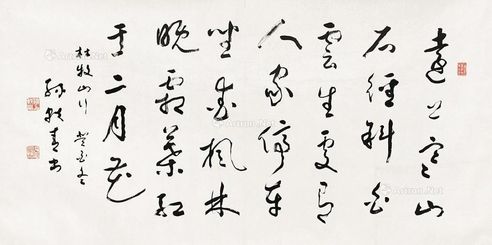 遠上寒山
石徑斜白
雲生處有
人家停車
坐愛楓林
晚霜葉紅
于二月花
杜牧山行
孫軼青书